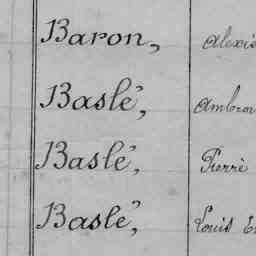 Baron, Alexis
Baslé, Ambroi
Baslé, Pierre
Baslé, Louis